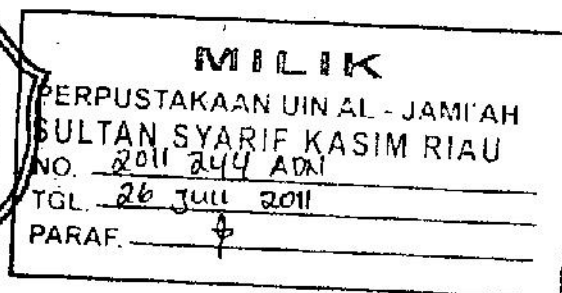 MILIK
PERPUSTAKAAN UIN AL - JAMI'AH
SULTAN SYARIF KASIM RIAU
NO. 2011 244 ADN
TGL. 26 JULI 2011
PARAF.